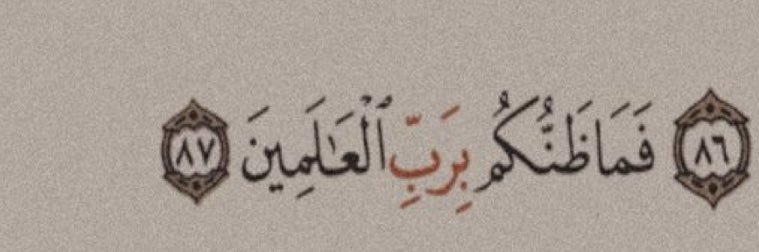 ﴿٨٦﴾ فَمَا ظَنُّكُم بِرَبِّ ٱلْعَٰلَمِينَ ﴿٨٧﴾